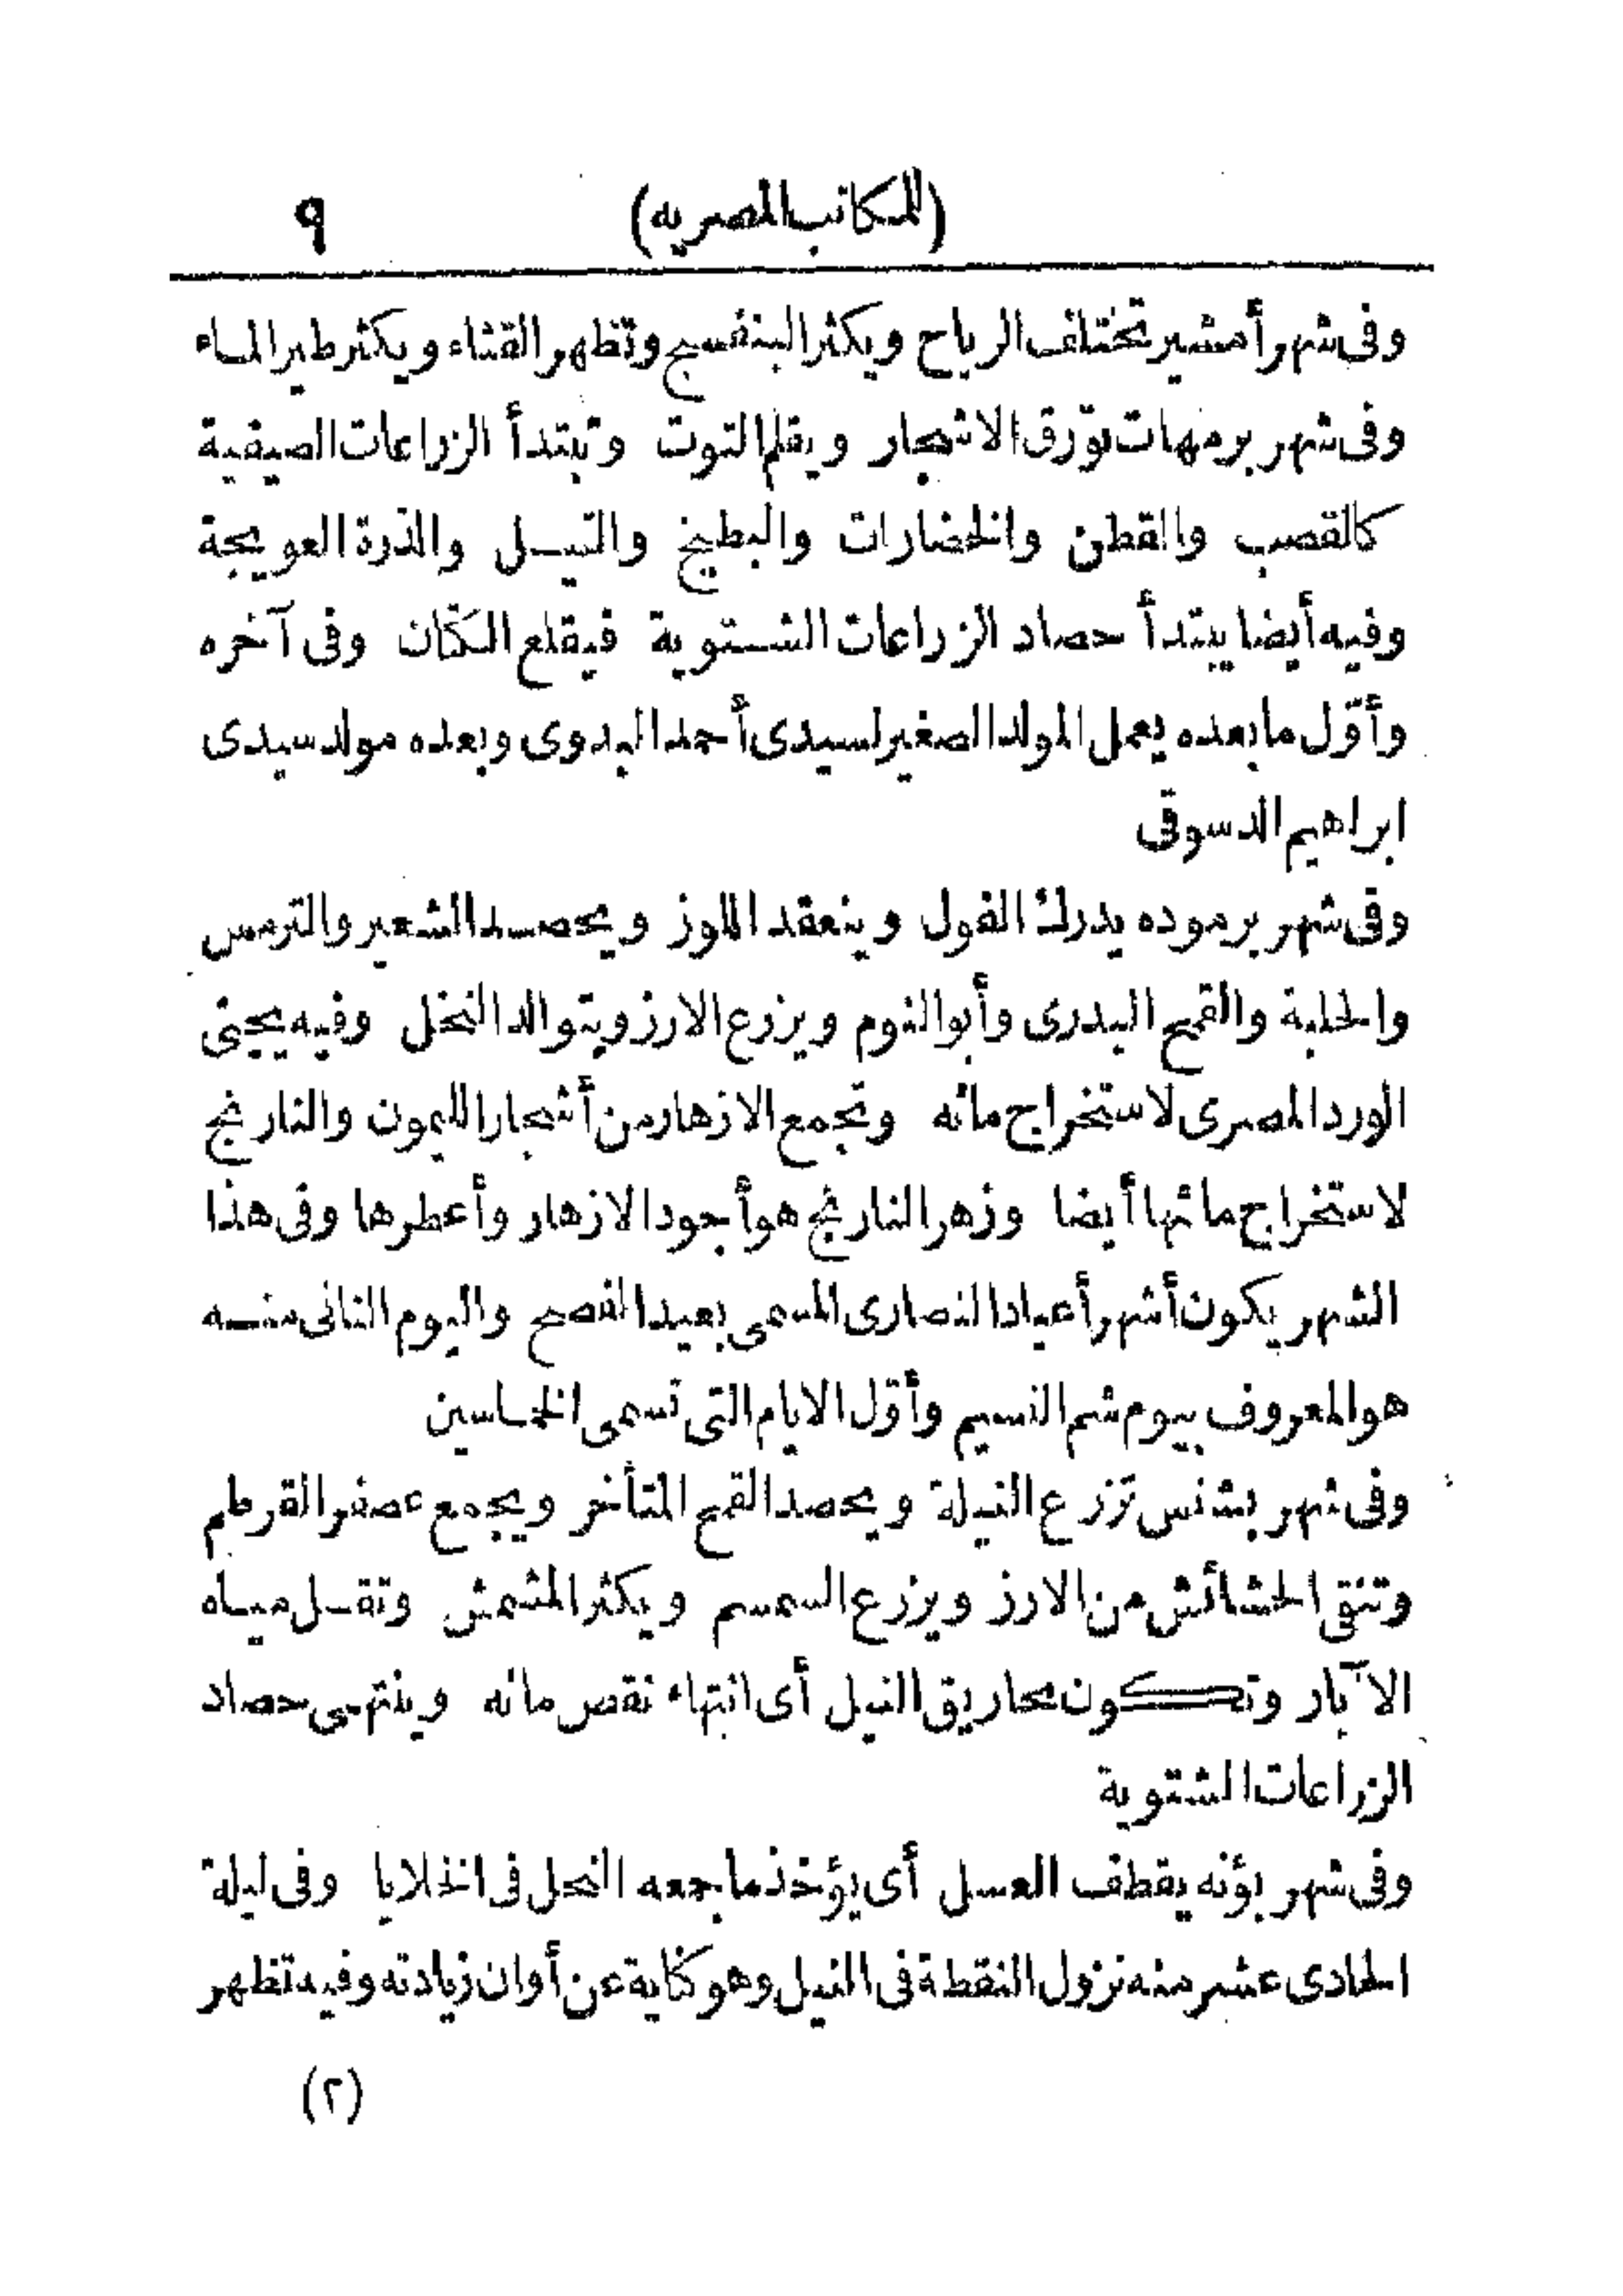 (للمكاتب المصريه) ٩
وفى شهر أمشير تختلف الرياح ويكثر البنفسج وتظهر القثاء ويكثر طير الماء
وفى شهر برمهات تورّق الاشجار ويقلم التوت وتبتدأ الزراعات الصيفية
كالقصب والقطن والخضارات والبطيخ والتيـل والذرة العويجة
وفيه أيضا يبتدأ حصاد الزراعات الشتوية فيقلع الكتان وفى آخره
وأوّل ما بعده يعمل المولد الصغير لسيدى أحمد البدوى وبعده مولد سيدى
ابراهيم الدسوقى
وفى شهر برموده يدرك الفول وينعقد اللوز ويحصد الشعير والترمس
والحلبة والقمح البدرى وأبو النوم ويزرع الارز ويتوالد النحل وفيه يجنى
الورد المصرى لاستخراج مائه وتجمع الازهار من أشجار الليمون والنارنج
لاستخراج مائها أيضا وزهر النارنج هو أجود الازهار وأعطرها وفى هذا
الشهر يكون أشهر أعياد النصارى المسمى بعيد الفصح واليوم الثانى منه
هو المعروف بيوم شم النسيم وأوّل الايام التى تسمى الخماسين
وفى شهر بشنس تزرع النيلة ويحصد القمح المتأخر ويجمع عصفر القرطم
وتنقى الحشائش من الارز ويزرع السمسم ويكثر المشمش وتقل مياه
الآبار وتكون تحاريق النيل أى انتهاء نقص مائه وينتهى حصاد
الزراعات الشتوية
وفى شهر بؤنه يقطف العسل أى يؤخذ ما جمعه النحل فى الخلايا وفى ليلة
الحادى عشر منه نزول النقطة فى النيل وهو كناية عن أوان زيادته وفيه تظهر
(٢)